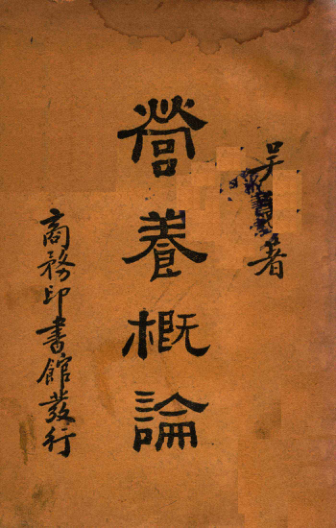 吳 著
營養概論
商務印書館發行